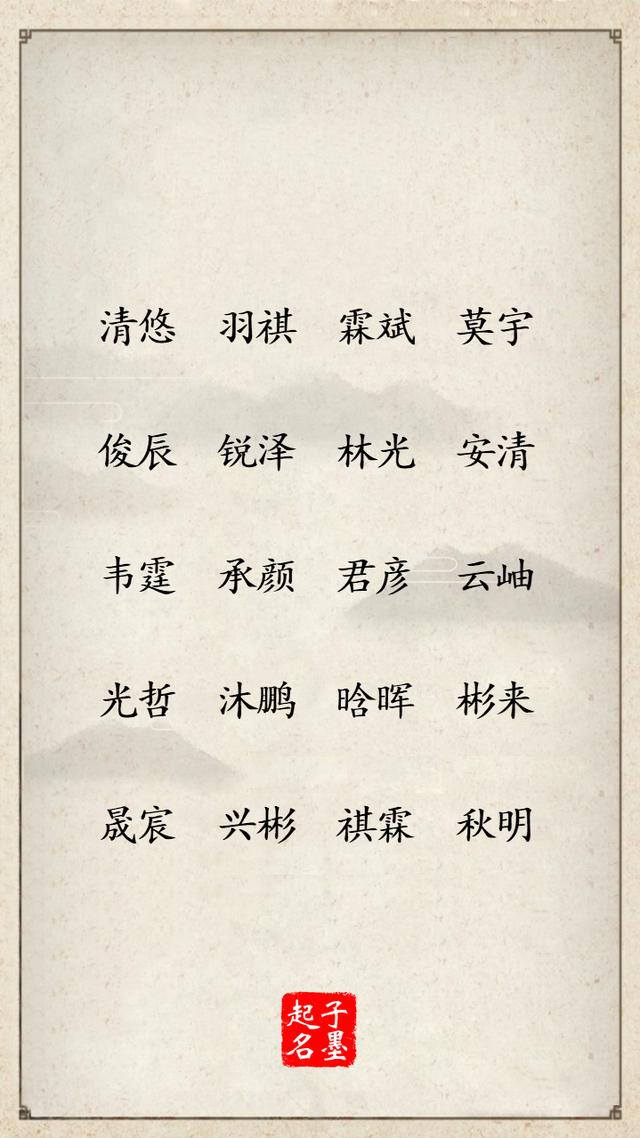 清悠 羽祺 霖斌 莫宇
俊辰 锐泽 林光 安清
韦霆 承颜 君彦 云岫
光哲 沐鹏 晗晖 彬来
晟宸 兴彬 祺霖 秋明
子墨
起名